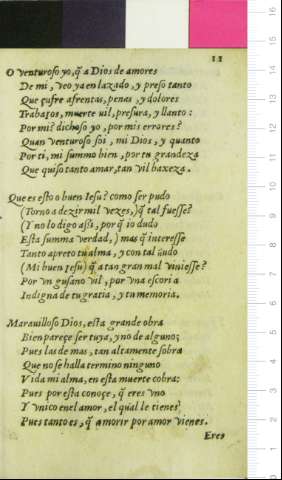 11
O venturoso yo, q̃ a Dios de amores
De mi, veo ya enlazado, y preso tanto
Que çufre afrentas, penas, y dolores
Trabajos, muerte vil, presura, y llanto:
Por mi? dichoso yo, por mis errores?
Quan venturoso soi, mi Dios, y quanto
Por ti, mi summo bien, por tu grandeza
Que quiso tanto amar, tan vil baxeza.
Que es esto o buen Iesu? como ser pudo
(Torno a dezir mil vezes,) q̃ tal fuesse?
(Y no lo digo assi, por q̃ io dudo
Esta summa verdad,) mas q̃ interesse
Tanto apreto tu alma, y con tal ñudo
(Mi buen Iesu) q̃ a tan gran mal viniesse?
Por vn gusano vil, por vna escoria
Indigna de tu gratia, y tu memoria.
Maravilloso Dios, esta grande obra
Bien pareçe ser tuya, y no de alguno;
Pues las de mas, tan altamente sobra
Que no se halla termino ninguno
Vida mi alma, en esta muerte cobra:
Pues por esta conoçe, q̃ eres vno
Y vnico en el amor, el qual le tienes
Pues tanto es, q̃ a morir por amor vienes.
Eres
16
15
14
13
12
11
10
9
8
7
6
5
4
3
2
1
0